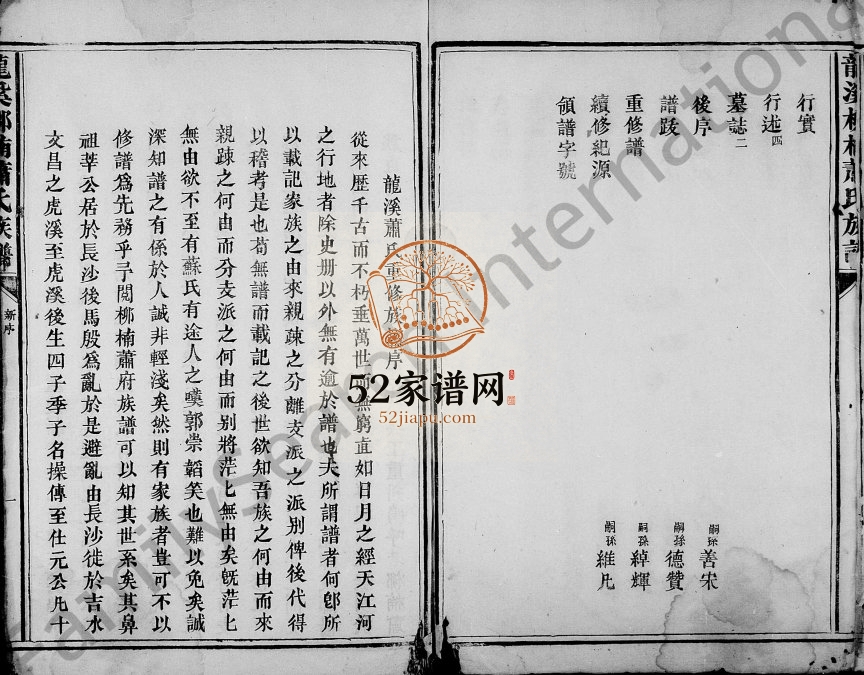 行實
行述四
墓誌二
後序
譜跋
重修譜
續修紀源
領譜字號
嗣孫善宋
嗣孫德贊
嗣孫綽輝
嗣孫維凡
龍溪蕭氏重修族序
從來歷千古而不朽垂萬世而無窮直如日月之經天江河
之行地者除史册以外無有逾於譜也夫所謂譜者何卽所
以載記家族之由來親疎之分離支派之派別俾後代得
以稽考是也苟無譜而載記之後世欲知吾族之何由而來
親疎之何由而分支派之何由而别將茫匕無由矣旣茫匕
無由欲不至有蘇氏有途人之嘆郭崇韜笑也難以免矣誠
深知譜之有係於人誠非輕淺矣然則有家族者豈可不以
修譜爲先務乎予閲柳楠蕭府族譜可以知其世系矣其鼻
祖莘公居於長沙後馬殷爲亂於是避亂由長沙徙於吉水
文昌之虎溪至虎溪後生四子季子名操傳至仕元公凡十
新序
龍溪柳楠蕭氏族譜
52家谱网
52jiapu.com
FamilySearch International